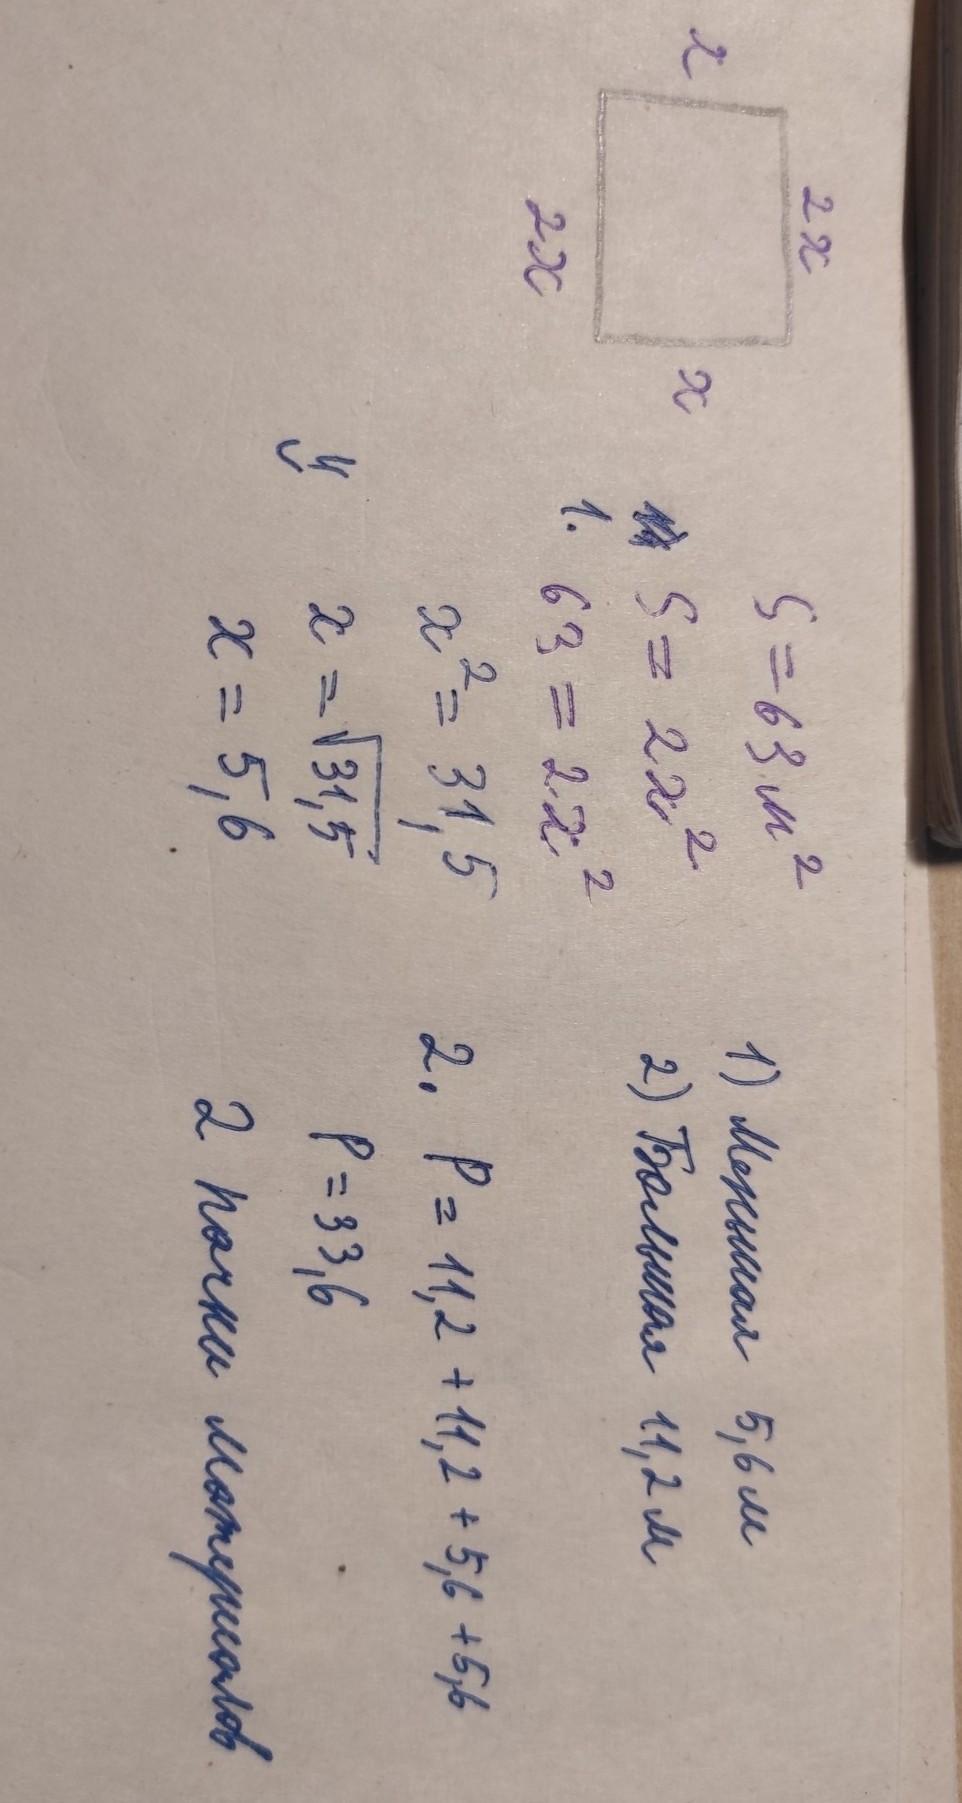 2x
x
x
2x
S = 63 м²
S = 2x²
1. 63 = 2x²
x² = 31,5
x = √31,5
x = 5,6
1) Меньшая 5,6 м
2) Большая 11,2 м
2. P = 11,2 + 11,2 + 5,6 + 5,6
P = 33,6
2 пачки материалов